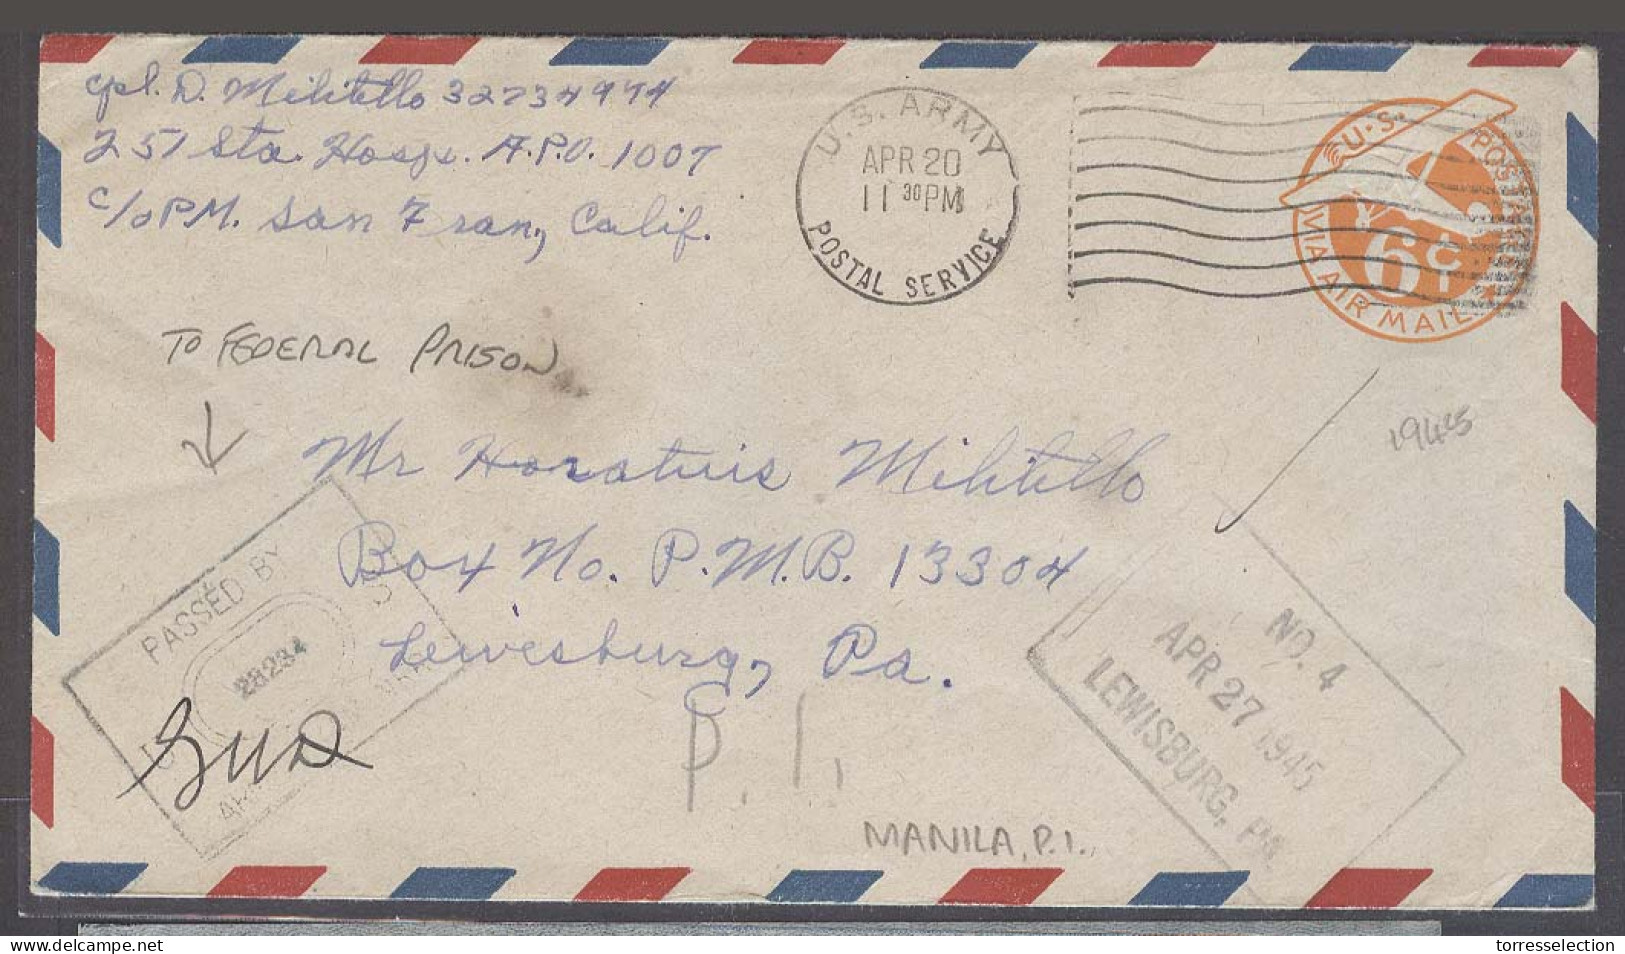 cpl. D. Militello 32734994
251 Sta. Hosp. A.P.O. 1007
c/o P.M. San Fran, Calif.
U.S. ARMY
APR 20
11 30 PM
POSTAL SERVICE
U.S. POSTAGE
6¢
VIA AIR MAIL
TO FEDERAL PRISON
1945
Mr Horatuis Militello
Box No. P.M.B. 13304
Lewesburg, Pa.
PASSED BY
28234
P.I.
MANILA, P.I.
NO. 4
APR 27 1945
LEWISBURG, PA.
delcampe.net
torresselection